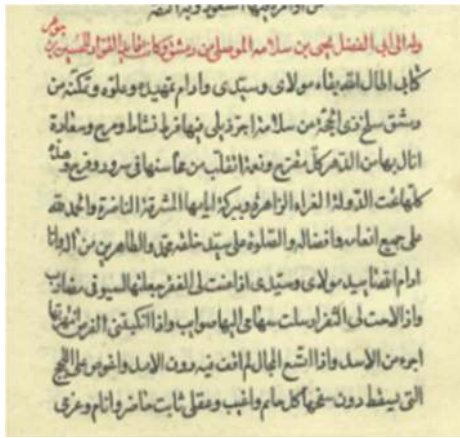 وله الى ابى الفضل يحيى بن سلامه الموصلى من دمشق وكان القواد الحسين بن جوهر
كتابى اطال الله بقاء مولاى وسيدى وادام تمهيده وعلوه وتمكنه من
دمشق سلخ ذى الحجة من سلامة اجر ذيلى فيها فرط نشاط ومرح وسعادة
انال بها من الدهر كل مقترح ونعمة اتقلب من محاسنها فى سرور وفرح وهذا
كله الدولة الغراء الزاهرة وبركة ايامها المشرقة الناضرة والحمد لله
على جميع انعامه وافضاله والصلوة على سيد خلقه محمد والطاهرين من اله وانا
ادام الله تاييد مولاى وسيدى اذا عنت لى الفقر جعلتها لسيوفى مضارب
واذا لاحت لى سلت سهامى اليها صوايب واذا الفرص انتهزتها
اجرء من الاسد واذا اتسع المجال لم اقف فيه دون الامد واغوص على اللجج
التى يسقط دون كل حايم واغيب وعقلى ثابت حاضر وانام وعزمى